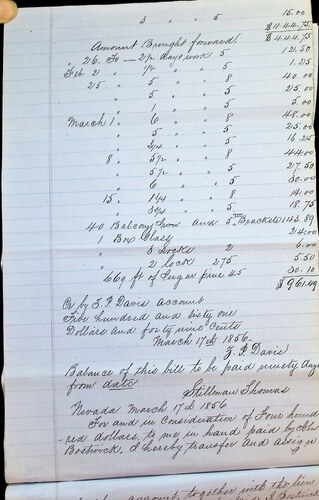 3 " " 5 15.00
$444.75
Amount Brought forward $444.75
" 26. To — 2 1/2 days work 5 12.50
Feb 21 " 1/4 " " 5 1.25
" 25 " 5 " " 8 40.00
" 5 " " 5 25.00
" 1 " " 5 5.00
March 1 " 6 " " 8 48.00
" 5 " " 5 25.00
" 3 1/4 " " 5 16.25
" 8 " 5 1/2 " " 8 44.00
" 5 1/2 " " 5 27.50
" 6 " " 5 30.00
" 15 " 1 3/4 " " 8 14.00
" 3 3/4 " " 5 18.75
40 Balcony Iron and 5 Brackets 143.89
1 Box Glass 24.00
" 3 Locks 2 6.00
" 2 lock 275 5.50
669 ft of Sugar pine 45 30.10
$961.49
Cr by Z. P. Davis account
Five hundred and sixty one
Dollars and forty nine Cents
March 17th 1856
Z. P. Davis
Balance of this bill to be paid ninety days
from date
Stillman Thomas
Nevada March 17th 1856
For and in Consideration of Four hund
red dollars, to me in hand paid by
Bostwick. I hereby transfer and assign
account, together with the lien